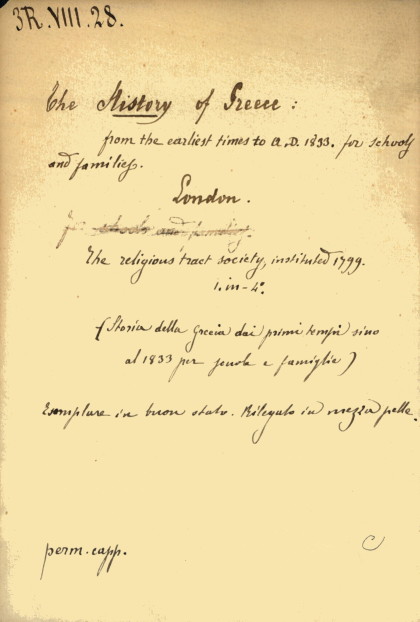 3R.VIII.28.
The History of Greece :
from the earliest times to A.D. 1833. for schools
and families.
London.
for schools and families.
The religious tract society, instituted 1799.
1. in - 4°.
( Storia della Grecia dai primi tempi sino
al 1833 per scuola e famiglie )
Esemplare in buon stato. Rilegato in mezza pelle.
perm. capp.
C